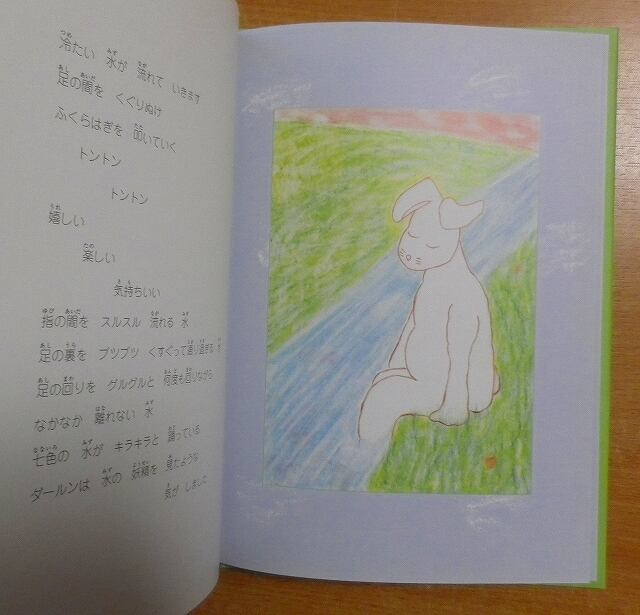 冷たい 水が 流れて いきます
足の間を くぐりぬけ
ふくらはぎを 叩いていく
トントン
トントン
嬉しい
楽しい
気持ちいい
指の間を スルスル 流れる 水
足の裏を ブツブツ くすぐって通り過ぎる 水
足の回りを グルグルと 何度も回りながら
なかなか 離れない 水
七色の 水が キラキラと 踊っている
ダールンは 水の 妖精を 見たような
気が しました